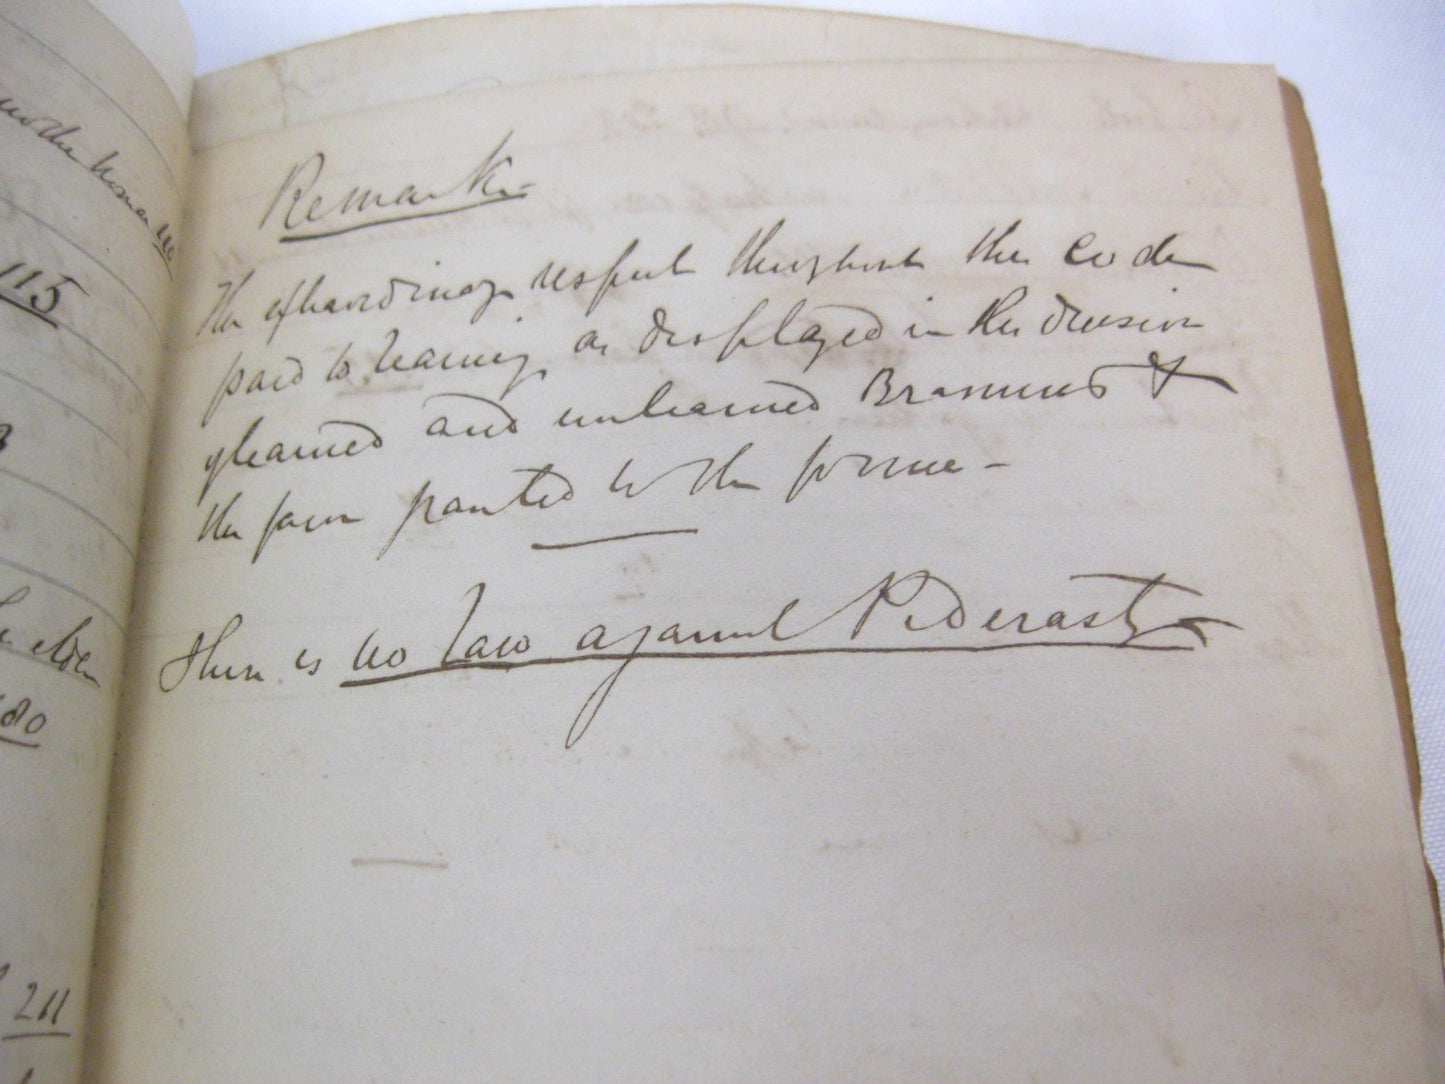 no
115
80
211
Remarks
The extraordinary respect throughout the code
paid to learning as displayed in the division
of learned and unlearned Bramins &
the favor granted to the former –
There is no law against Pederasty